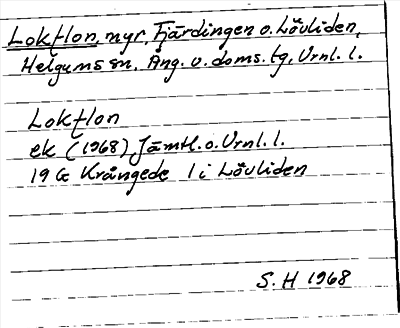 Lokflon, nyr, Fjärdingen o. Lövliden,
Helgums sn, Ång. v. doms. tg, Vrnl. l.
Lokflon
ek (1968) Jämtl. o. Vrnl. l.
19 G Krångede 1 i Lövliden
S. H 1968